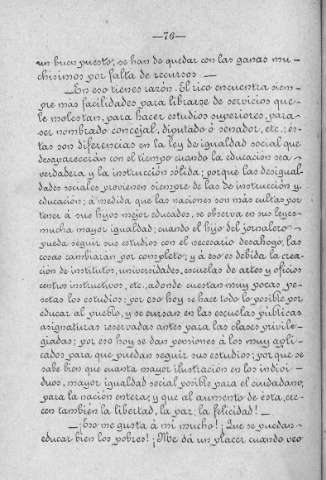 —76—
un buen puesto, se han de quedar con las ganas mu-
chísimos por falta de recursos —
—En eso tienes razón. El rico encuentra siem-
pre más facilidades para librarse de servicios que
le molestan, para hacer estudios superiores, para
ser nombrado concejal, diputado ó senador, etc.; és-
tas son diferencias en la ley de igualdad social que
desaparecerán con el tiempo cuando la educación sea
verdadera y la instrucción sólida; porque las desigual-
dades sociales provienen siempre de las de instrucción y
educación; á medida que las naciones son más cultas por
tener á sus hijos mejor educados, se observa en sus leyes
mucha mayor igualdad; cuando el hijo del jornalero
pueda seguir sus estudios con el necesario desahogo, las
cosas cambiarán por completo; y á eso es debida la crea-
ción de institutos, universidades, escuelas de artes y oficios
centros instructivos, etc, adonde cuestan muy pocas pe-
setas los estudios; por eso hoy se hace todo lo posible por
educar al pueblo, y se cursan en las escuelas públicas
asignaturas reservadas antes para las clases privile-
giadas; por eso hoy se dan pensiones á los muy apli-
cados para que puedan seguir sus estudios; por que se
sabe bien que cuanta mayor ilustración en los indivi-
duos, mayor igualdad social posible para el ciudadano,
para la nación entera; y que al aumento de ésta, cre-
cen también la libertad, la paz, la felicidad! —
—¡Eso me gusta á mí mucho! ¡Que se puedan
educar bien los pobres! ¡Me dá un placer cuando veo